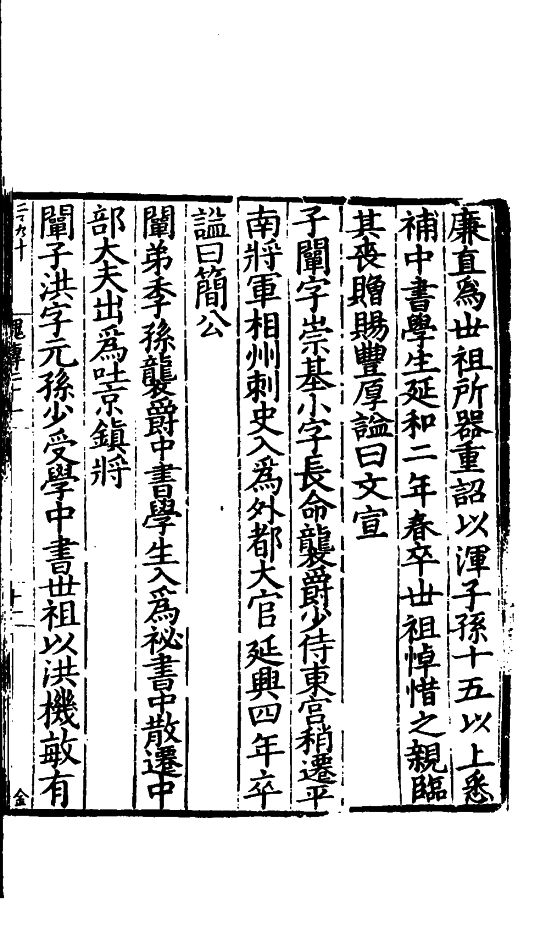 廉直爲世祖所器重詔以渾子孫十五以上悉
補中書學生延和二年春卒世祖悼惜之親臨
其喪贈賜豐厚謚曰文宣
子闡字崇基小字長命襲爵少侍東宮稍遷平
南將軍相州刺史入爲外都大官延興四年卒
謚曰簡公
闡弟季孫襲爵中書學生入爲祕書中散遷中
部大夫出爲吐京鎮將
闡子洪字元孫少受學中書世祖以洪機敏有
金